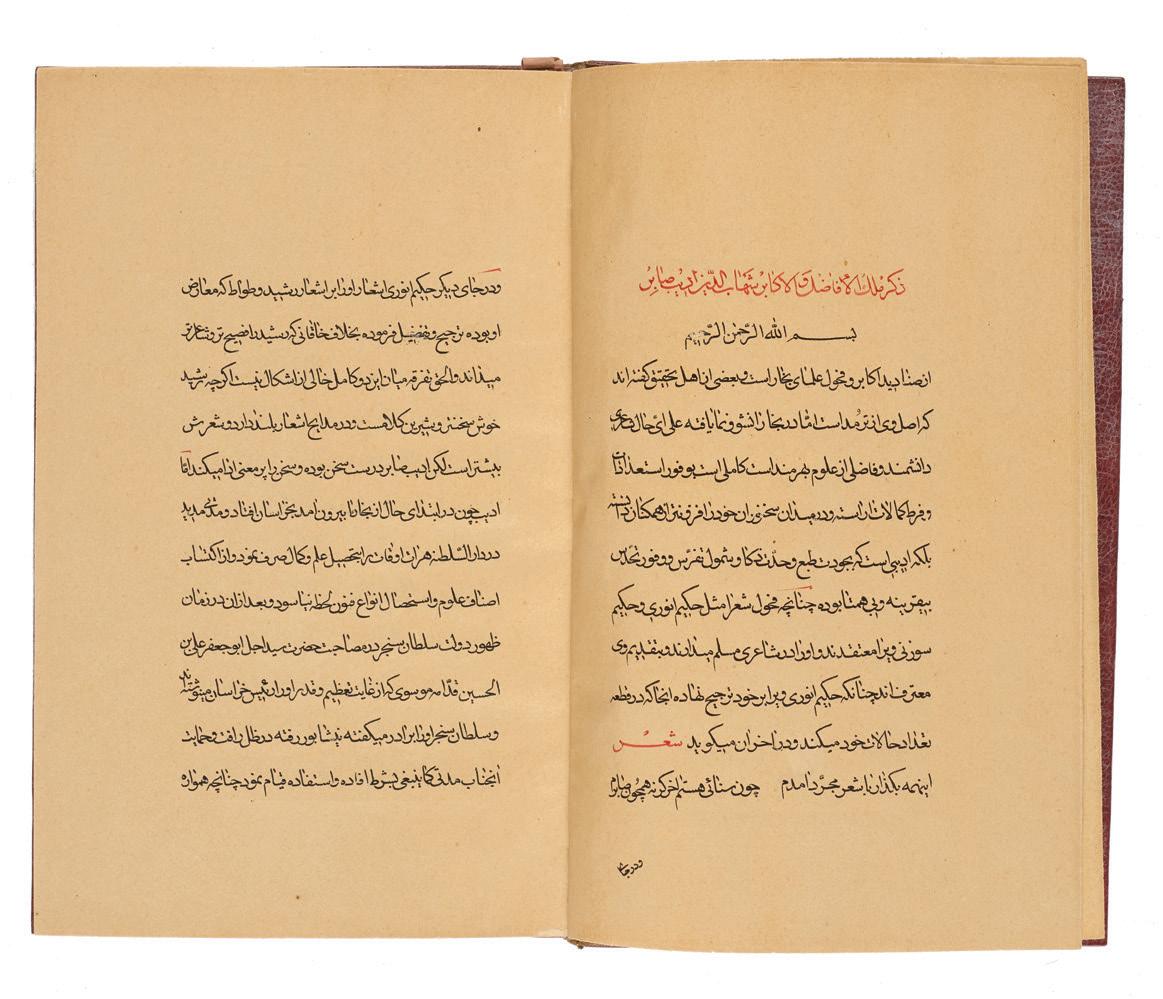 ذکر ملک الافاضل والاکابر شهاب الدین ادیب صابر
بسم الله الرحمن الرحیم
از صنادید اکابر و فحول علمای بخاراست و بعضی از اهل تحقیق گفته اند
که اصل وی از ترمد است امّا در بخارا نشو و نما یافته علی ای حال
دانشمند و فاضلی از علوم بهرمند است کاملی است بوفور استعداد
و فرط کمالات اراسته و در میدان سخنوران خود را فزونتر از همکنان
بلکه ادیبی است که بجودت طبع و حدّت ذکا و شمول تفرّس و وفور
بیقرینه و بی همتا بوده چنانچه فحول شعرا مثل حکیم انوری و حکیم
سوزنی ویرا معتقدند و او را در شاعری مسلم میدارند و بتقدیم وی
معترف اند چنانکه حکیم انوری ویرا بر خود ترجیح نهاده انجا که در قطعه
تعداد حالات خود میکند و در اخر ان میکوید شعر
اینهمه بکذار با شعر مجرّد امدم چون سنائی هستم اخر کرنه همچون صابرم
و در جای
و در جای دیکر حکیم انوری اشعار او را بر اشعار رشید وطواط که معارض
او بوده ترجیح و تفضیل فرموده بخلاف خاقانی که رشید را فصیح تر و شاعرتر
میداند والحق تفرقه میان این دو کامل خالی از اشکال نیست اکرچه رشید
خوش سخنتر و شیرین کلامست و در مدایح اشعار بلند دارد و شعرش
بیشتر است لکن ادیب صابر درست سخن بوده و سخن را پر معنی ادا میکند امّا
ادیب چون در ابتدای حال از بخارا بیرون امد بخراسان افتاد و مدّتی مدید
در دار السّلطنه هرات اوقات را بتحصیل علم و کمال صرف نمود و از اکتساب
اصناف علوم و استحصال انواع فنون لحظه نیاسود و بعد ازان در زمان
ظهور دولت سلطان سنجر در مصاحبت حضرت سید اجل ابو جعفر علی بن
الحسین قدامه موسوی که از غایت تعظیم و قدر او را رئیس خراسان مینوشته‌اند
و سلطان سنجر او را برادر میکفته نیشابور رفته در ظل رافت و حمایت
انجناب مدتی کما ینبغی بشرط افاده و استفاده قیام نمود چنانچه همواره